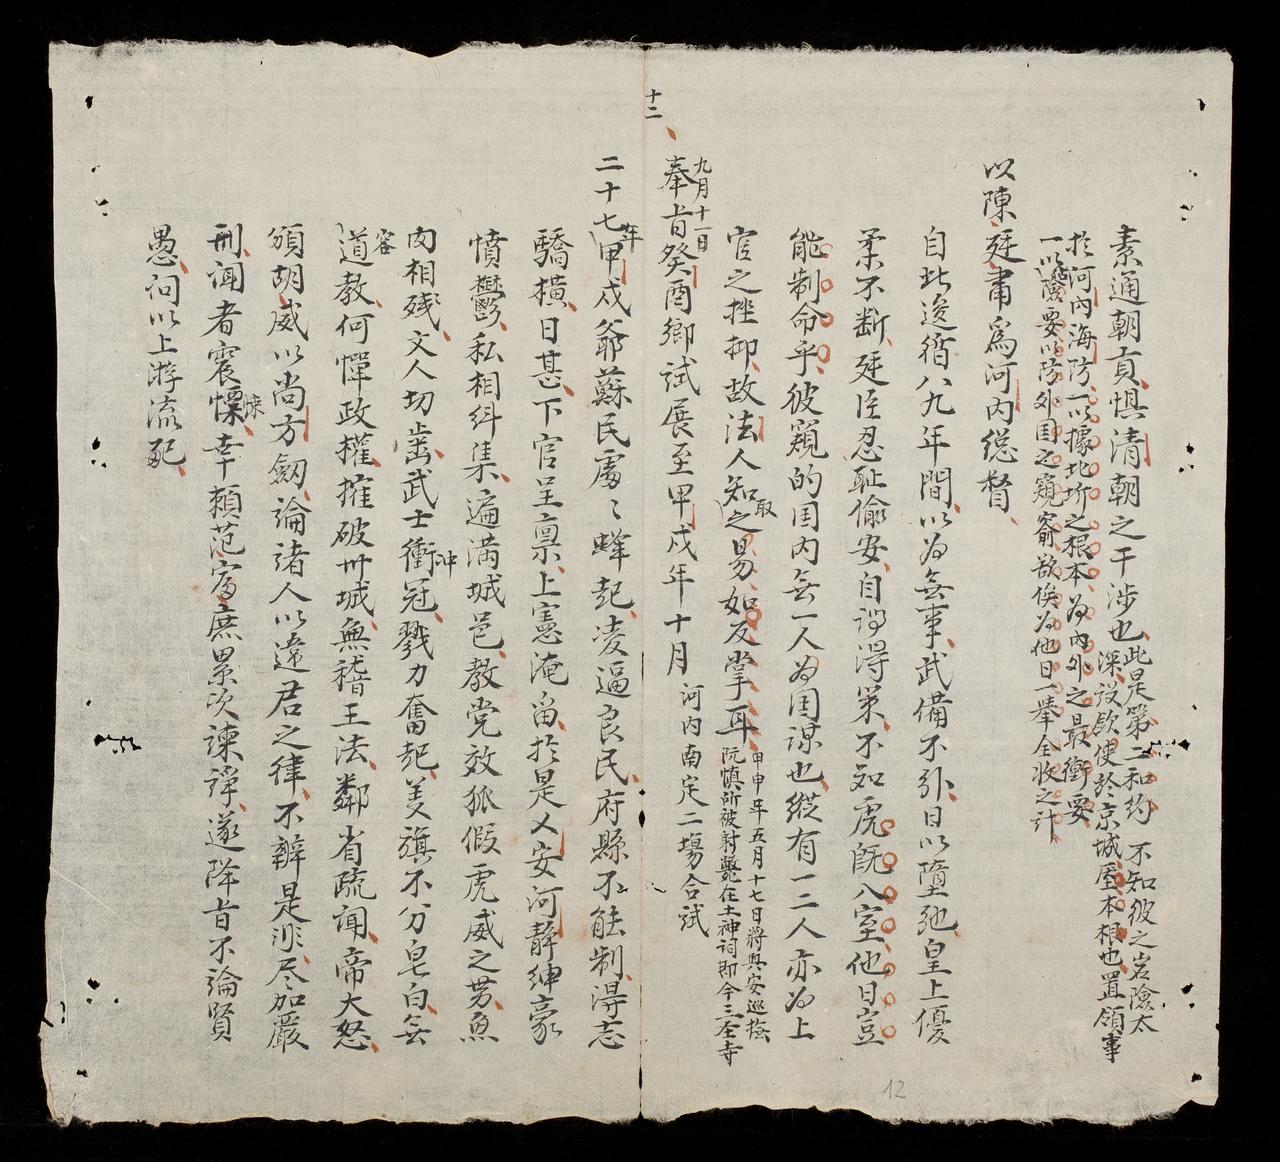 十二
素通朝貢惧清朝之干涉也此是第二和約 不知彼之岩險太
深設欽使於京城屋本根也置領事
於河內海防一以據北圻之根本為內外之最衝要
一以陰要以防外国之窺窬欲俟為他日一舉全收之計
以陳廷肅為河內総督
自此逡循八九年間以為無事武備不引日以墮弛皇上優
柔不断廷臣忍耻偸安自謂得策不知虎既入室他日豈
能制命乎彼窺的国內無一人為国謀也縱有一二人亦為上
官之挫抑故法人取之易如反掌耳甲申年五月十七日將興安巡撫
阮慎所被射斃在土神祠即今三圣寺
九月十一日
奉旨癸酉鄉試展至甲戌年十月河內南定二場合試
二十七年甲戌爺蘇民處々蜂起凌逼良民府縣不能制得志
驕橫日甚下官呈禀上憲淹留於是乂安河靜紳豪
憤欝私相糾集遍滿城邑教党效狐假虎威之势魚
肉相残文人切齒武士衝冠戮力奮起義旗不分皂白無
道教何憚政權摧破州城無稽王法鄰省疏闻帝大怒
頒胡威以尚方劒論諸人以違君之律不辨是非尽加嚴
刑闻者震懔幸賴范富庶累次諫諍遂降旨不論賢
愚何以上游流配